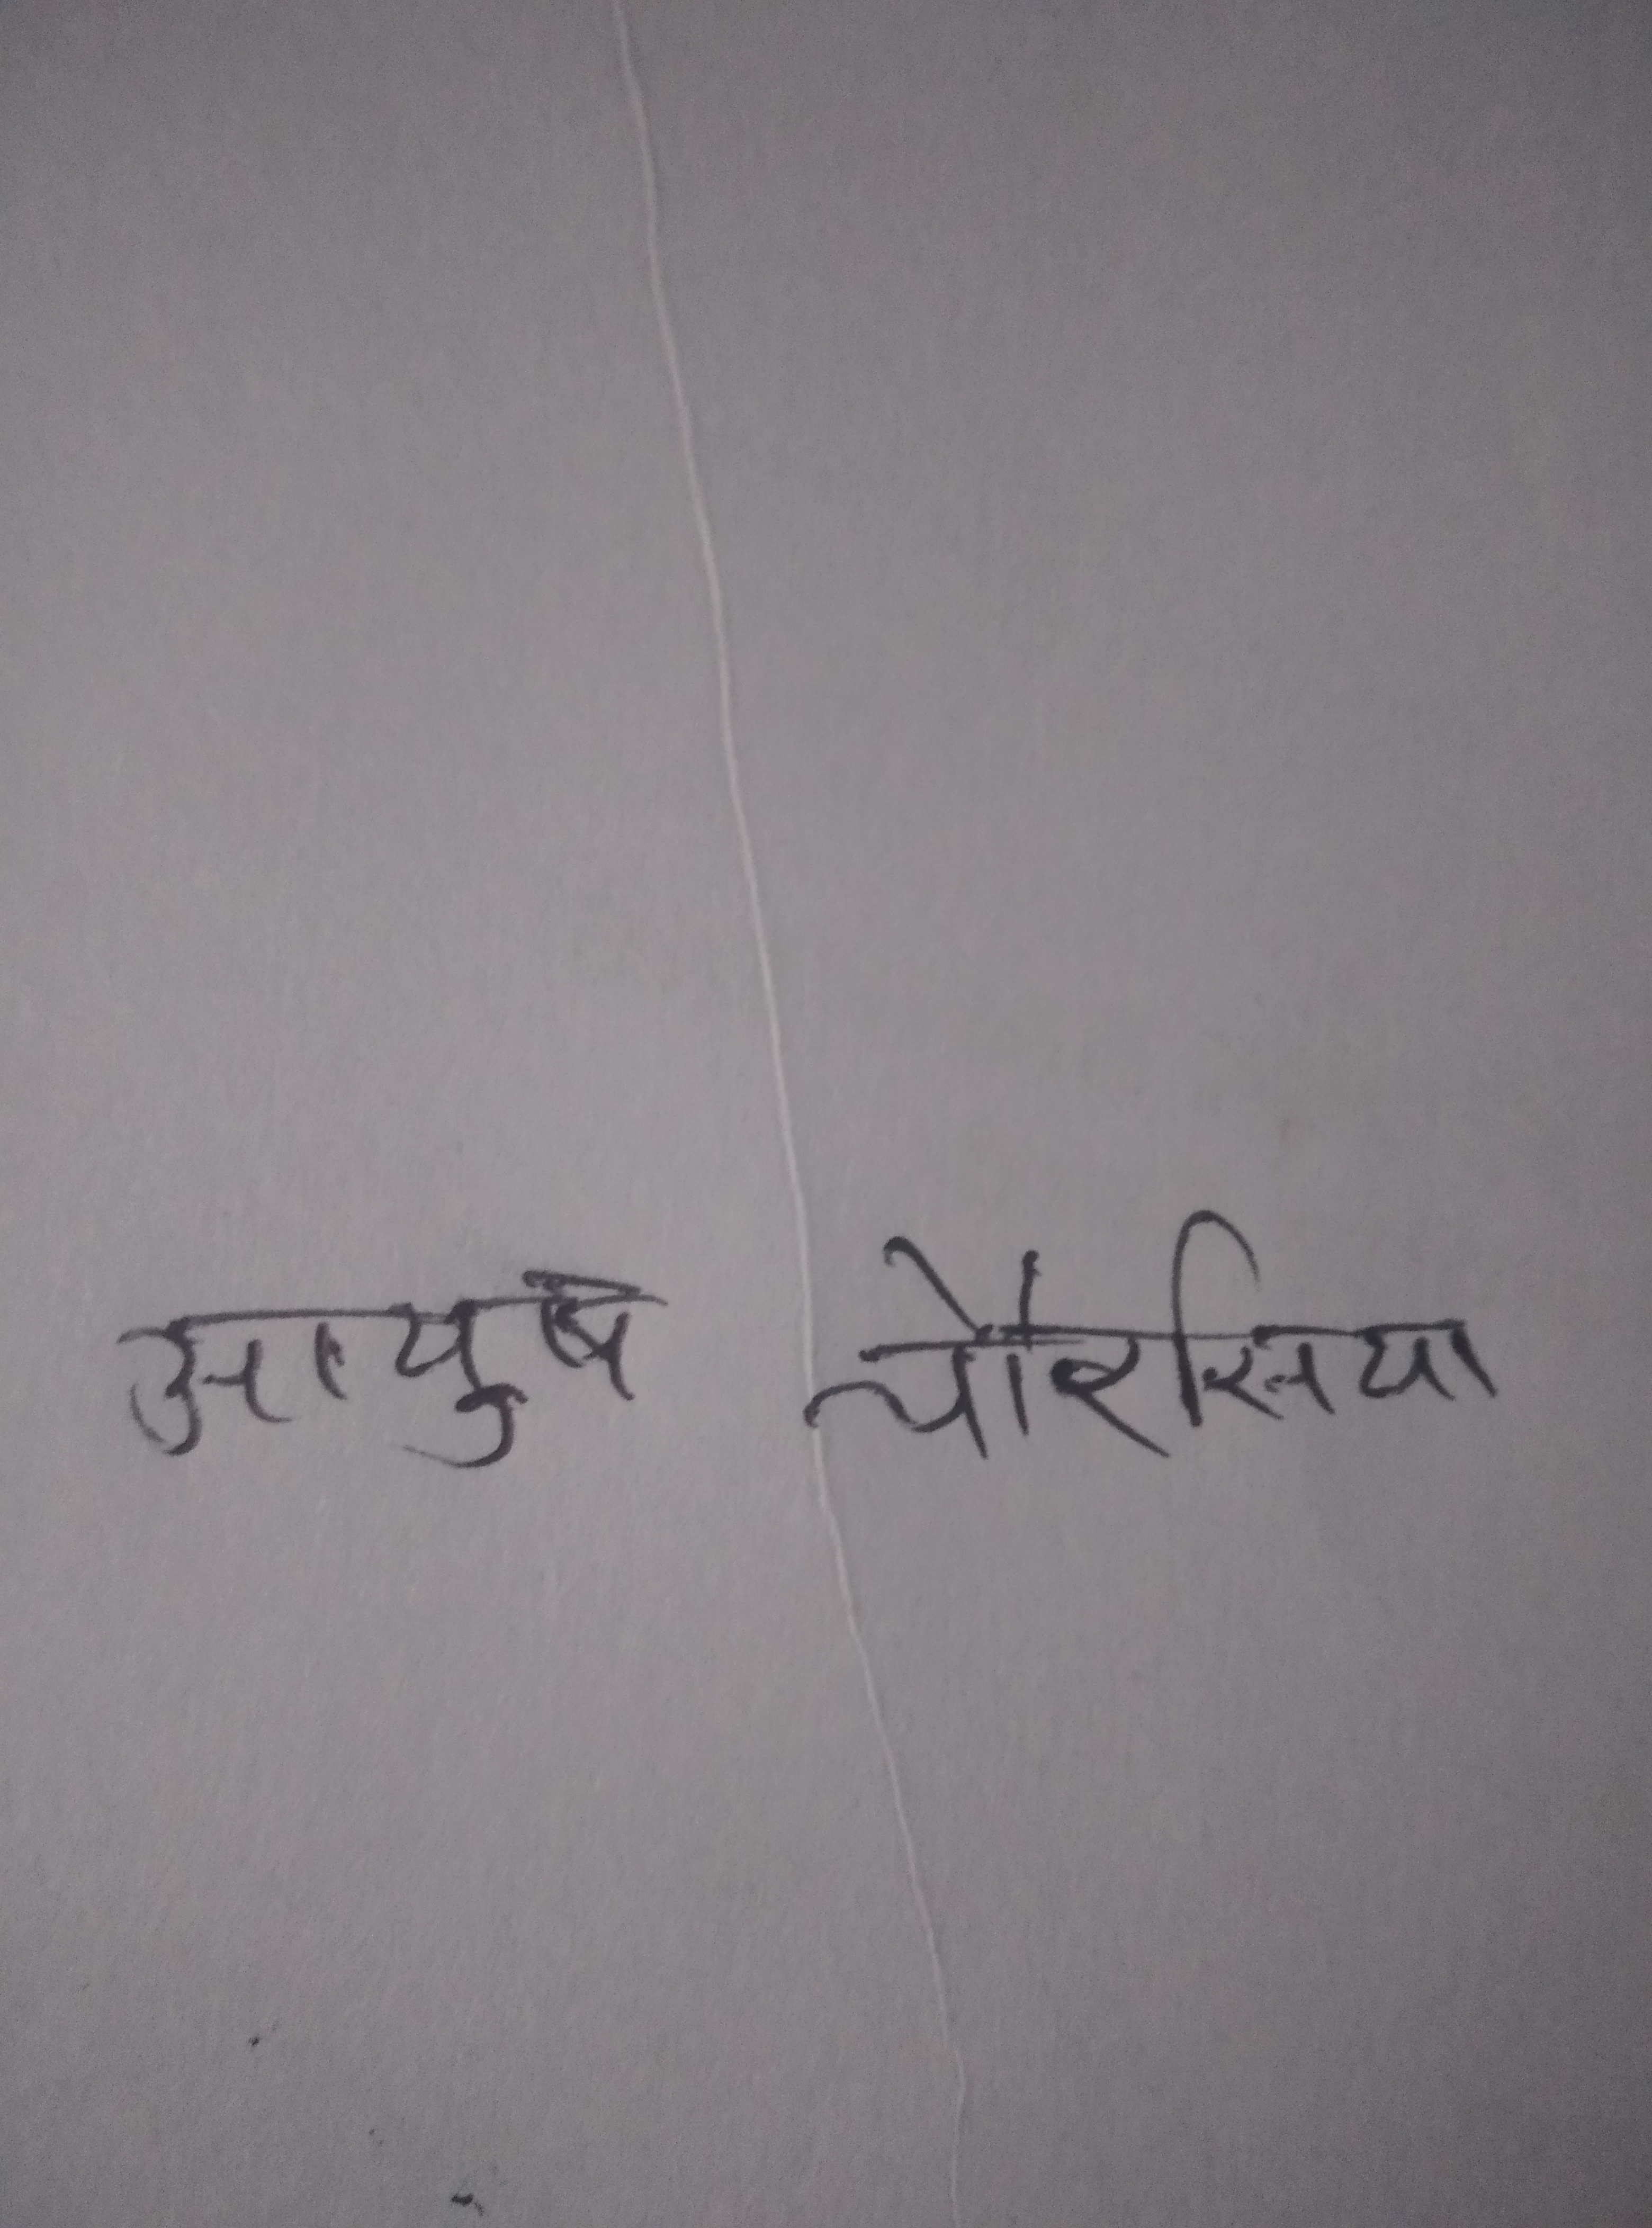 आयुष चौरसिया